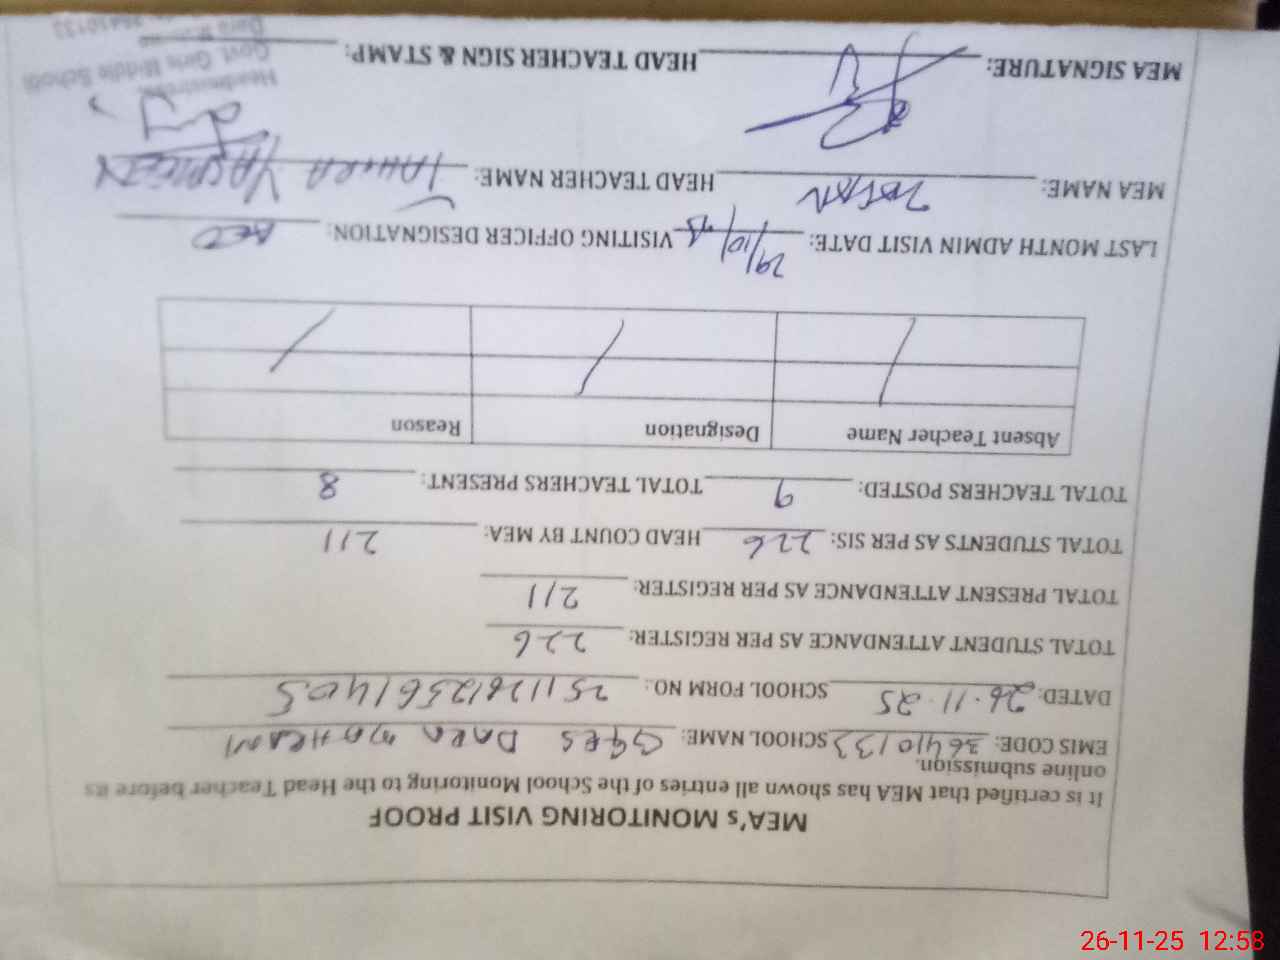 MEA's MONITORING VISIT PROOF
It is certified that MEA has shown all entries of the School Monitoring to the Head Teacher before its
online submission.
EMIS CODE: 36410133 SCHOOL NAME: GGES DARA
DATED: 26.11.25 SCHOOL FORM NO.:
TOTAL STUDENT ATTENDANCE AS PER REGISTER: 226
TOTAL PRESENT ATTENDANCE AS PER REGISTER: 211
TOTAL STUDENTS AS PER SIS: 226 HEAD COUNT BY MEA: 211
TOTAL TEACHERS POSTED: 9 TOTAL TEACHERS PRESENT: 8
Absent Teacher Name Designation Reason
LAST MONTH ADMIN VISIT DATE: 29/10/25 VISITING OFFICER DESIGNATION: AEO
MEA NAME: HEAD TEACHER NAME: TAHIRA YASMEEN
MEA SIGNATURE: HEAD TEACHER SIGN & STAMP:
Headmistress
Govt. Girls Middle School
26-11-25 12:58